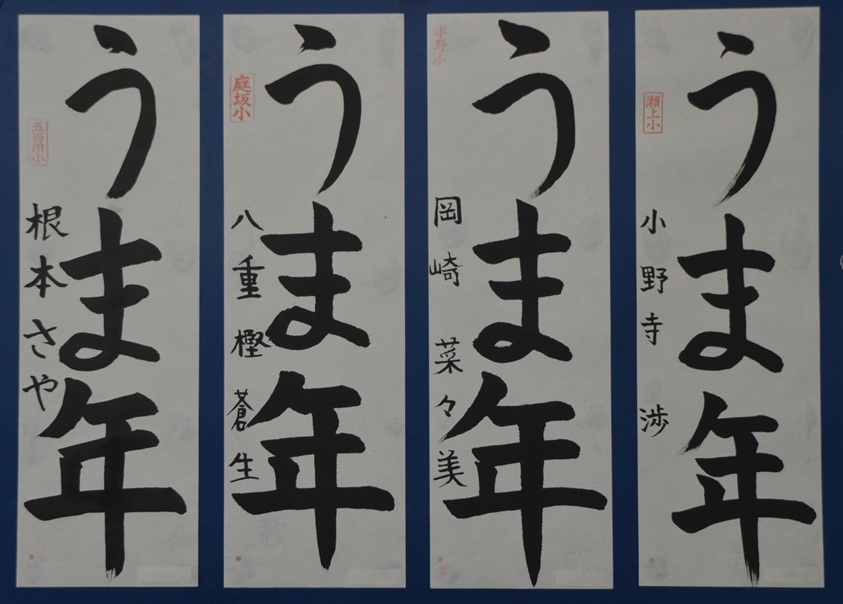 うま年
瀬上小
小野寺 渉
うま年
平野小
岡崎 菜々美
うま年
庭坂小
八重樫 蒼生
うま年
五百川小
根本さや